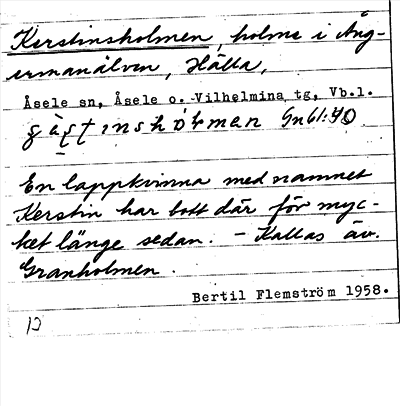 Kerstinsholmen, holme i Ång-
ermanälven, Hälla,
Åsele sn, Åsele o. Vilhelmina tg, Vb.l.
Gnbl:40
En lappkvinna med namnet
Kerstin har bott där för myc-
ket länge sedan. – Kallas äv.
Granholmen.
Bertil Flemström 1958.